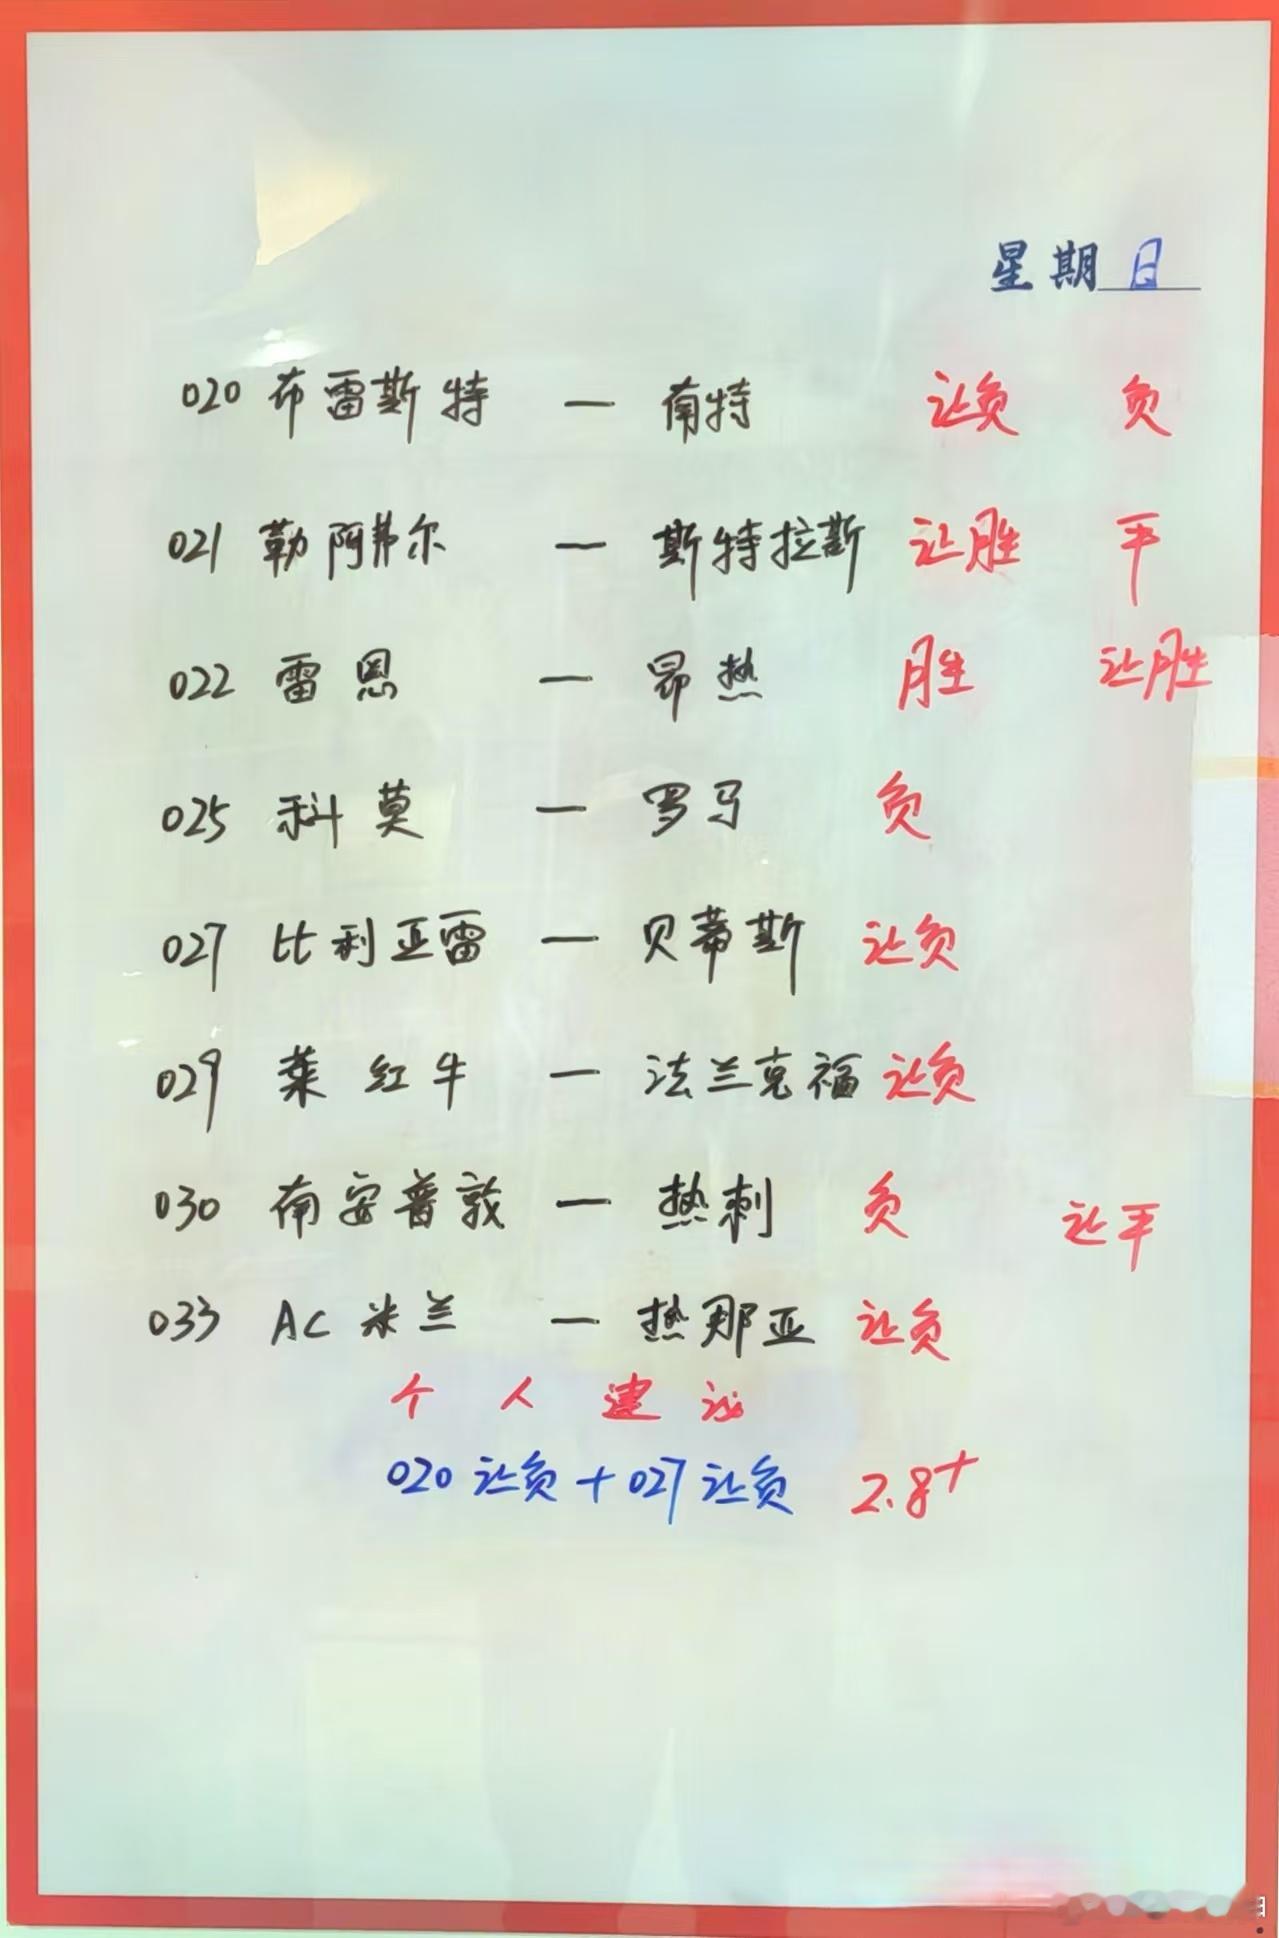 星期日
020 布雷斯特 — 南特 让负 负
021 勒阿弗尔 — 斯特拉斯 让胜 平
022 雷恩 — 昂热 胜 让胜
025 科莫 — 罗马 负
027 比利亚雷 — 贝蒂斯 让负
029 莱红牛 — 法兰克福 让负
030 南安普敦 — 热刺 负 让平
033 AC米兰 — 热那亚 让负
个人建议
020 让负 + 027 让负 2.8+